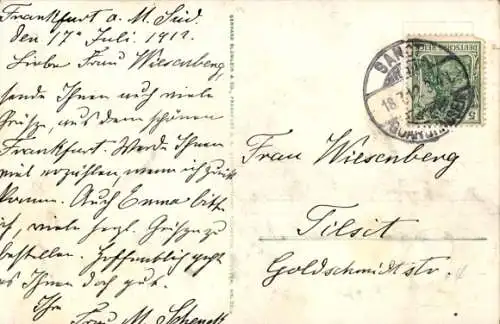 Frankfurt a. M. Süd.
den 17. Juli. 1912.
Liebe Frau Wiesenberg,
sende Ihnen auch viele
Grüße, aus dem schönen
Frankfurt. Werde Ihnen
viel erzählen, wenn ich zurück
komme. Auch Emma bitte
ich, viele herzl. Grüße zu
bestellen. Hoffentlich geht
es Ihnen doch gut.
Ihre
Frau M. Schenk
DEUTSCHES REICH
5
18.7.12
Frau Wiesenberg
Tilsit
Goldschmidtstr.